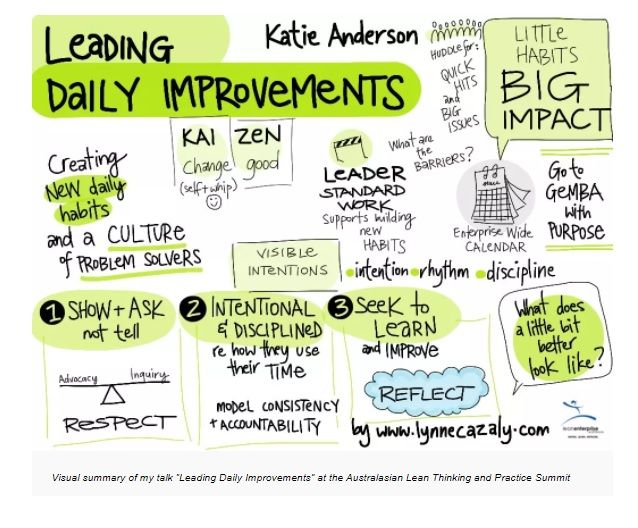 LEADING
DAILY IMPROVEMENTS
Katie Anderson
HUDDLE for:
QUICK
HITS
and
BIG
ISSUES
LITTLE
HABITS
BIG
IMPACT
KAI ZEN
change good
(self + whip)
Creating
NEW daily
habits
and a CULTURE
of PROBLEM SOLVERS
LEADER
STANDARD
WORK
supports building
new
HABITS
What are
the
BARRIERS?
Enterprise Wide
CALENDAR
Go to
GEMBA
with
PURPOSE
VISIBLE
INTENTIONS
•intention •rhythm •discipline
1 SHOW + ASK
not tell
Advocacy Inquiry
RESPECT
2 INTENTIONAL
& DISCIPLINED
re how they use
their TIME
MODEL CONSISTENCY
+ ACCOUNTABILITY
3 SEEK to
LEARN
and IMPROVE
REFLECT
What does
a little bit
better
look like?
by www.lynnecazaly.com
leanenterprise
Visual summary of my talk "Leading Daily Improvements" at the Australasian Lean Thinking and Practice Summit